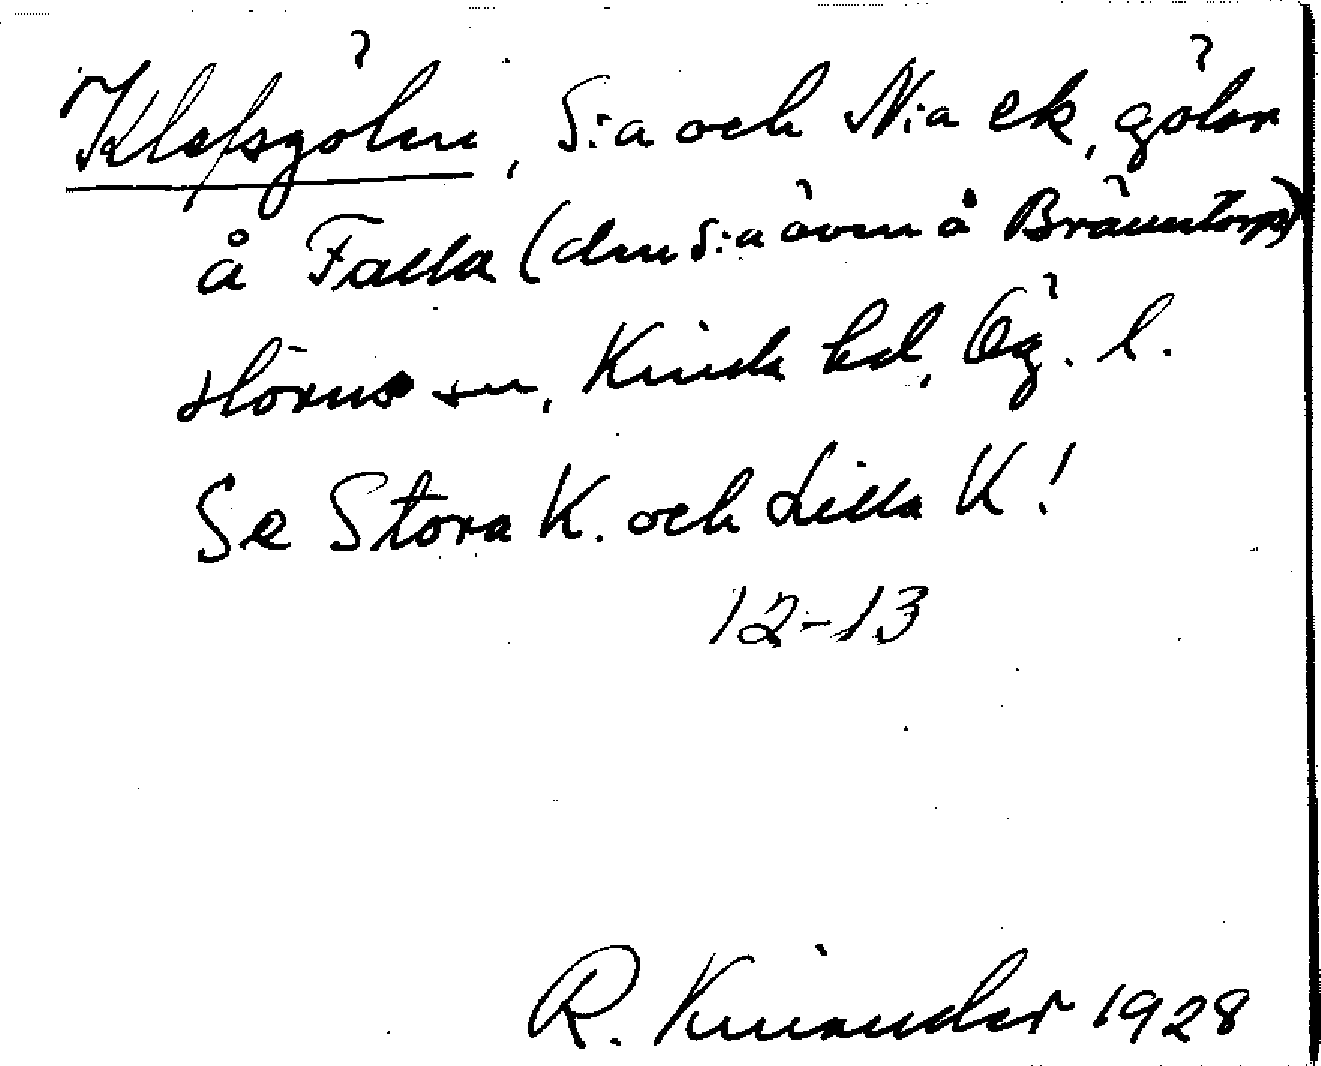 Klefsgölen, S:a och N:a ek, gölar
å Falla (den S:a även å Bräuntorp)
Hörns sn, Kinda hd, Ög. l.
Se Stora K. och Lilla K!
12-13
R. Kinander 1928